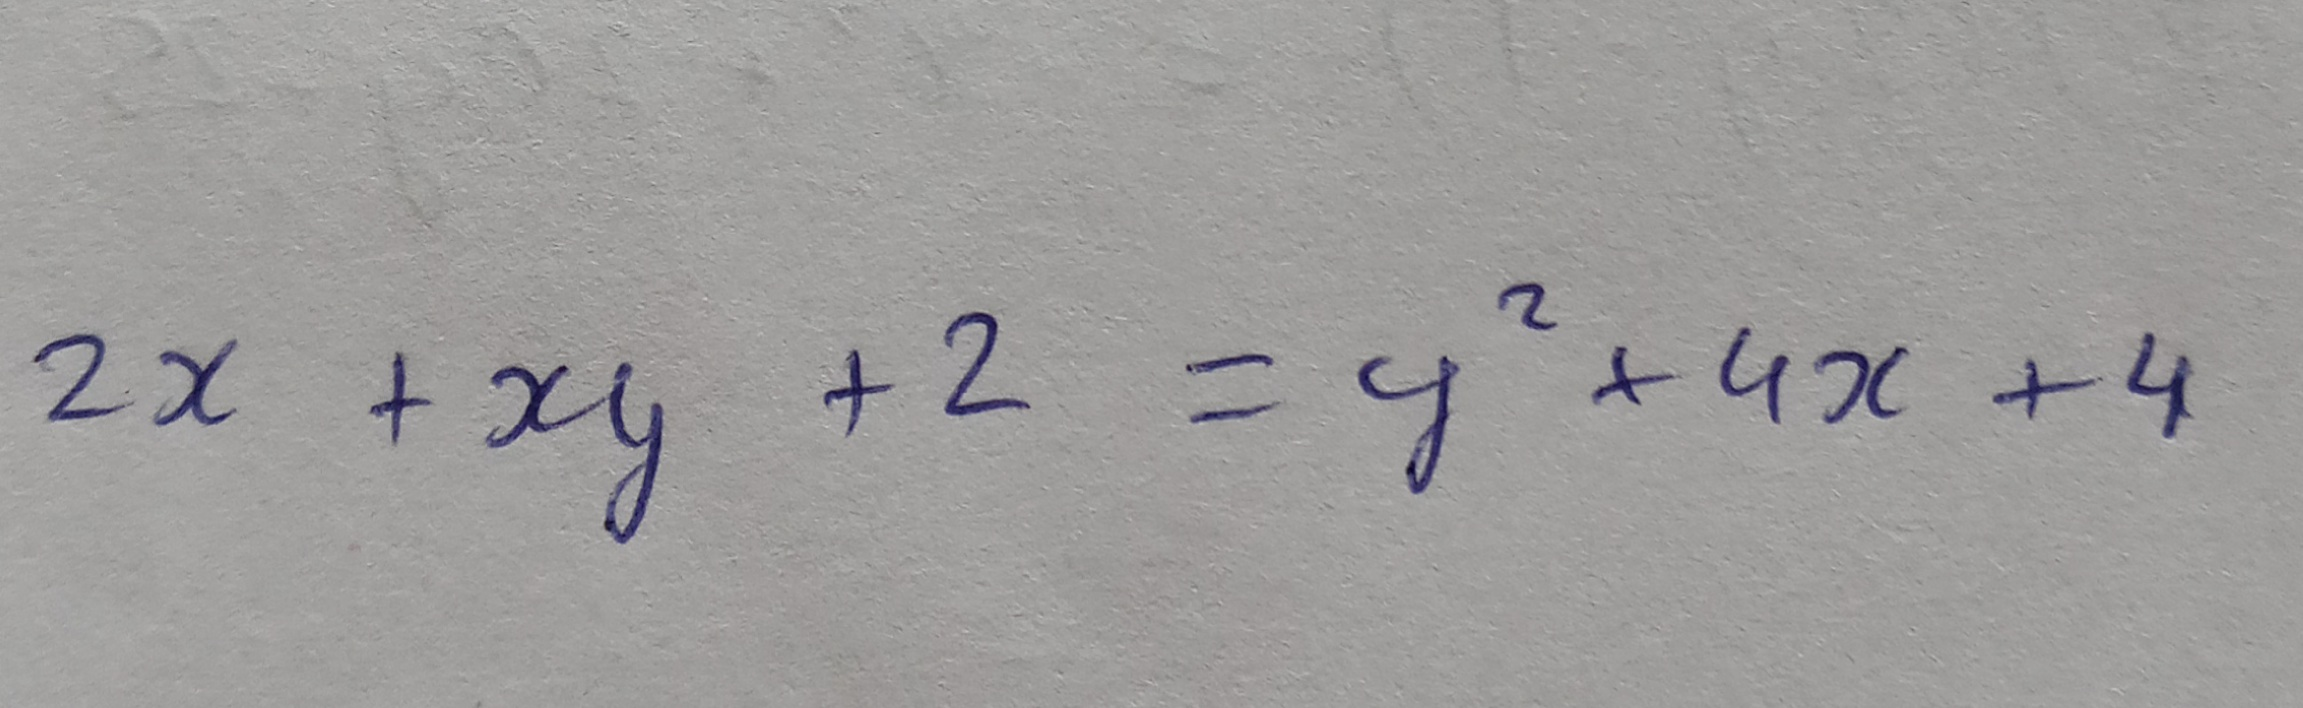 2x + xy + 2 = y² + 4x + 4